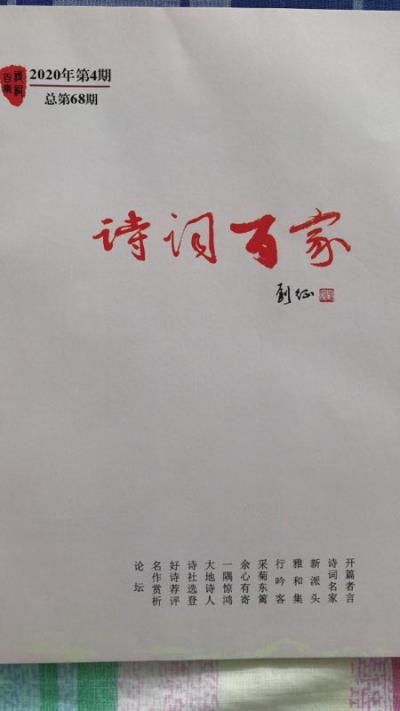 诗词
百家
2020年第4期
总第68期
诗词百家
刘征
开篇者言
诗词名家
新派头
雅和集
行吟客
采菊东篱
余心有寄
一隅惊鸿
大地诗人
诗社选登
好诗荐评
名作赏析
论坛